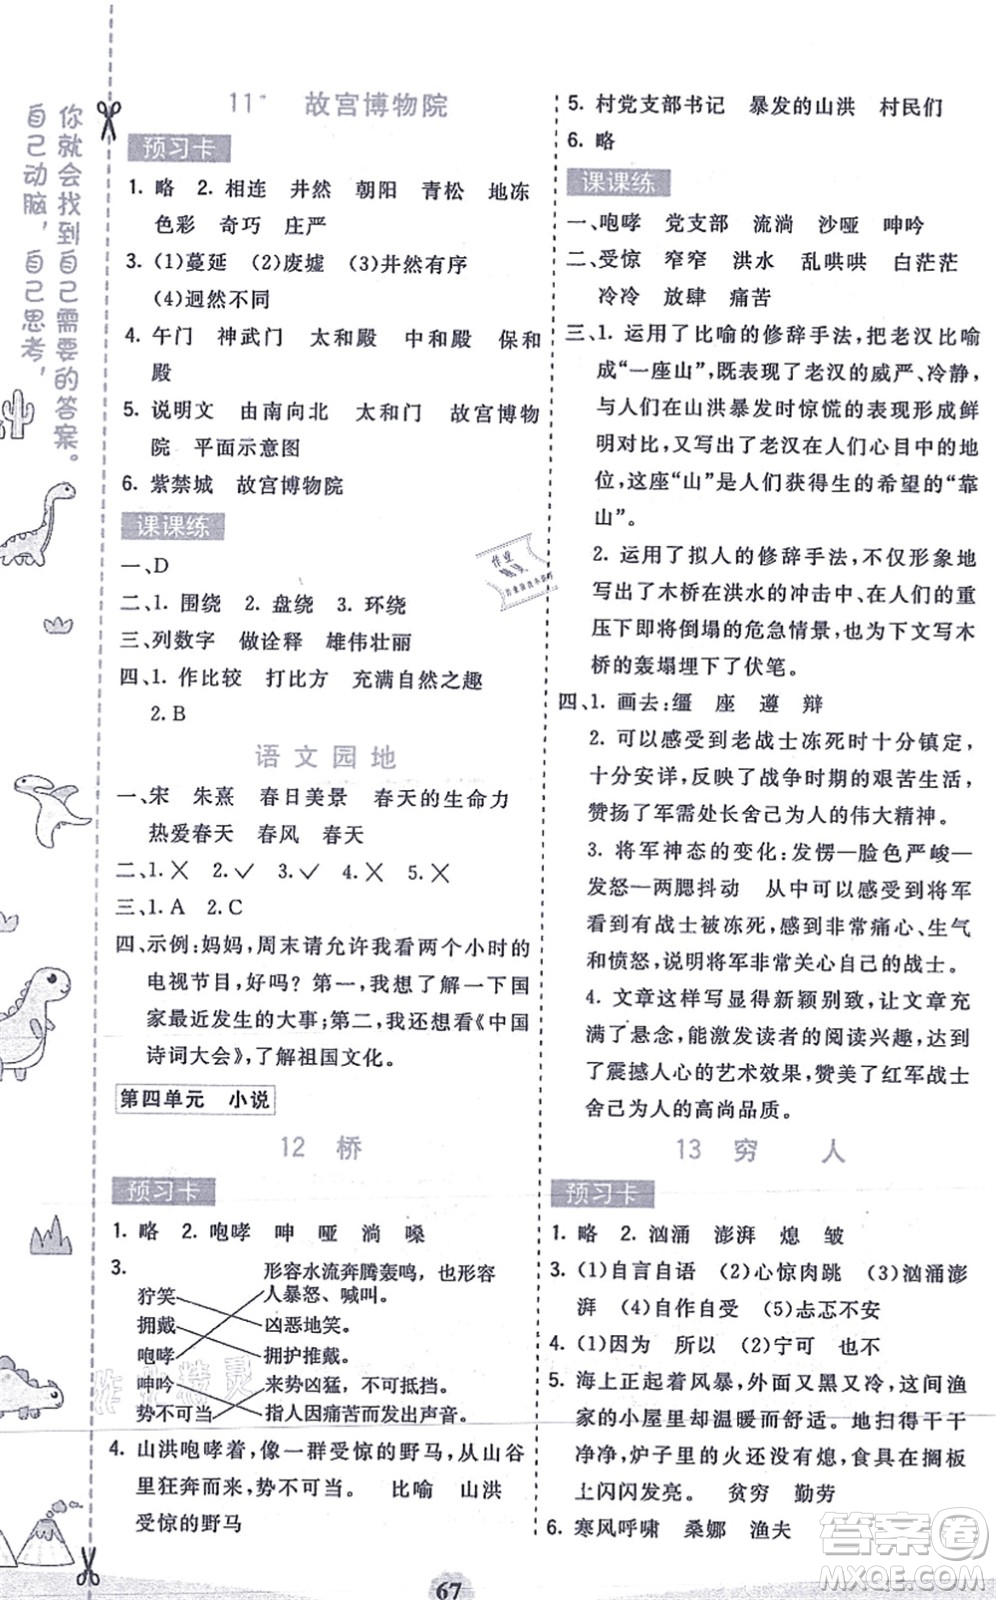 你就会找到自己需要的答案。
自己动脑，自己思考，
11 故宫博物院
预习卡
1. 略 2. 相连 井然 朝阳 青松 地冻
色彩 奇巧 庄严
3. (1)蔓延 (2)废墟 (3)井然有序
(4)迥然不同
4. 午门 神武门 太和殿 中和殿 保和
殿
5. 说明文 由南向北 太和门 故宫博物
院 平面示意图
6. 紫禁城 故宫博物院
课课练
一、D
二、1. 围绕 2. 盘绕 3. 环绕
三、列数字 做诠释 雄伟壮丽
四、1. 作比较 打比方 充满自然之趣
2. B
语文园地
一、宋 朱熹 春日美景 春天的生命力
热爱春天 春风 春天
二、1.✕ 2.✓ 3.✓ 4.✕ 5.✕
三、1. A 2. C
四、示例：妈妈，周末请允许我看两个小时的
电视节目，好吗？第一，我想了解一下国
家最近发生的大事；第二，我还想看《中国
诗词大会》，了解祖国文化。
第四单元 小说
12 桥
预习卡
1. 略 2. 咆哮 呻 哑 淌 嗓
3.
形容水流奔腾轰鸣，也形容
狞笑 人暴怒、喊叫。
拥戴 凶恶地笑。
咆哮 拥护推戴。
呻吟 来势凶猛，不可抵挡。
势不可当 指人因痛苦而发出声音。
4. 山洪咆哮着，像一群受惊的野马，从山谷
里狂奔而来，势不可当。 比喻 山洪
受惊的野马
5. 村党支部书记 暴发的山洪 村民们
6. 略
课课练
一、咆哮 党支部 流淌 沙哑 呻吟
二、受惊 窄窄 洪水 乱哄哄 白茫茫
冷冷 放肆 痛苦
三、1. 运用了比喻的修辞手法，把老汉比喻
成“一座山”，既表现了老汉的威严、冷静，
与人们在山洪暴发时惊慌的表现形成鲜
明对比，又写出了老汉在人们心目中的地
位，这座“山”是人们获得生的希望的“靠
山”。
2. 运用了拟人的修辞手法，不仅形象地
写出了木桥在洪水的冲击中、在人们的重
压下即将倒塌的危急情景，也为下文写木
桥的轰塌埋下了伏笔。
四、1. 画去：缰 座 遵 辩
2. 可以感受到老战士冻死时十分镇定，
十分安详，反映了战争时期的艰苦生活，
赞扬了军需处长舍己为人的伟大精神。
3. 将军神态的变化：发愣—脸色严峻—
发怒—两腮抖动 从中可以感受到将军
看到有战士被冻死，非常痛心、生气
和愤怒，说明将军非常关心自己的战士。
4. 文章这样写显得新颖别致，让文章充
满了悬念，能激发读者的阅读兴趣，达到
了震撼人心的艺术效果，赞美了红军战士
舍己为人的高尚品质。
13 穷人
预习卡
1. 略 2. 汹涌 澎湃 熄 皱
3. (1)自言自语 (2)心惊肉跳 (3)汹涌澎
湃 (4)自作自受 (5)忐忑不安
4. (1)因为 所以 (2)宁可 也不
5. 海上正起着风暴，外面又黑又冷，这间渔
家的小屋里却温暖而舒适。地扫得干干
净净，炉子里的火还没有熄，食具在搁板
上闪闪发亮。 贫穷 勤劳
6. 寒风呼啸 桑娜 渔夫
67
作业精灵
答案圈
MXQE.COM